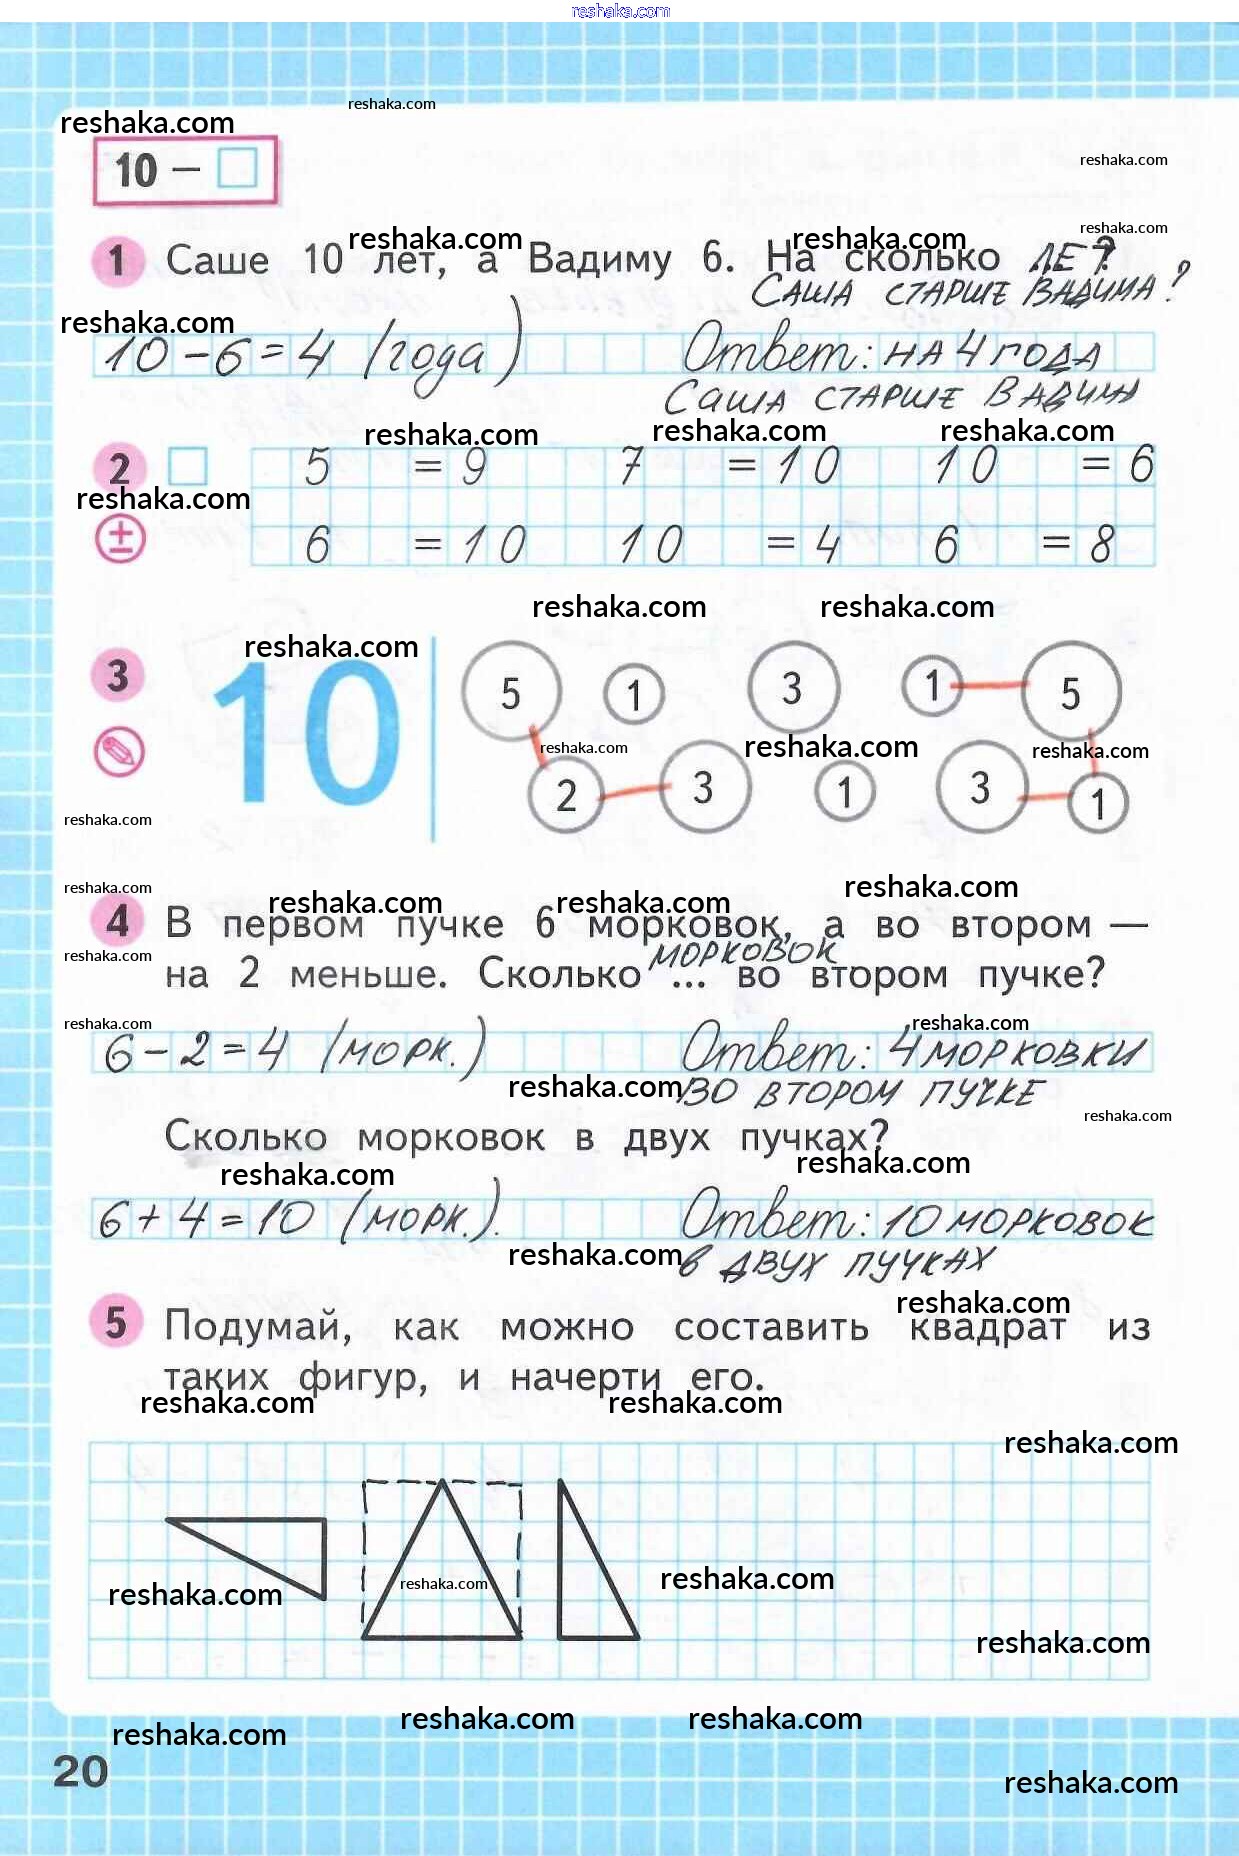 reshaka.com
reshaka.com
reshaka.com
10 –
reshaka.com
reshaka.com
reshaka.com reshaka.com
1 Саше 10 лет, а Вадиму 6. На сколько ЛЕТ ?
САША СТАРШЕ ВАДИМА?
reshaka.com
10 – 6 = 4 (года) Ответ: НА 4 ГОДА
САША СТАРШЕ ВАДИМА
reshaka.com reshaka.com reshaka.com
2 5 = 9 7 = 10 10 = 6
reshaka.com
± 6 = 10 10 = 4 6 = 8
reshaka.com reshaka.com
reshaka.com
3 10 5 1 3 1 5
reshaka.com reshaka.com reshaka.com
2 3 1 3 1
reshaka.com
reshaka.com reshaka.com
reshaka.com reshaka.com
4 В первом пучке 6 морковок, а во втором —
МОРКОВОК
reshaka.com
на 2 меньше. Сколько ... во втором пучке?
reshaka.com reshaka.com
6 – 2 = 4 (МОРК.) Ответ: 4 МОРКОВКИ
reshaka.com ВО ВТОРОМ ПУЧКЕ
reshaka.com
Сколько морковок в двух пучках?
reshaka.com reshaka.com
6 + 4 = 10 (МОРК.). Ответ: 10 МОРКОВОК
reshaka.com В ДВУХ ПУЧКАХ
reshaka.com
5 Подумай, как можно составить квадрат из
таких фигур, и начерти его.
reshaka.com reshaka.com
reshaka.com
reshaka.com reshaka.com reshaka.com
reshaka.com
reshaka.com reshaka.com reshaka.com
20
reshaka.com